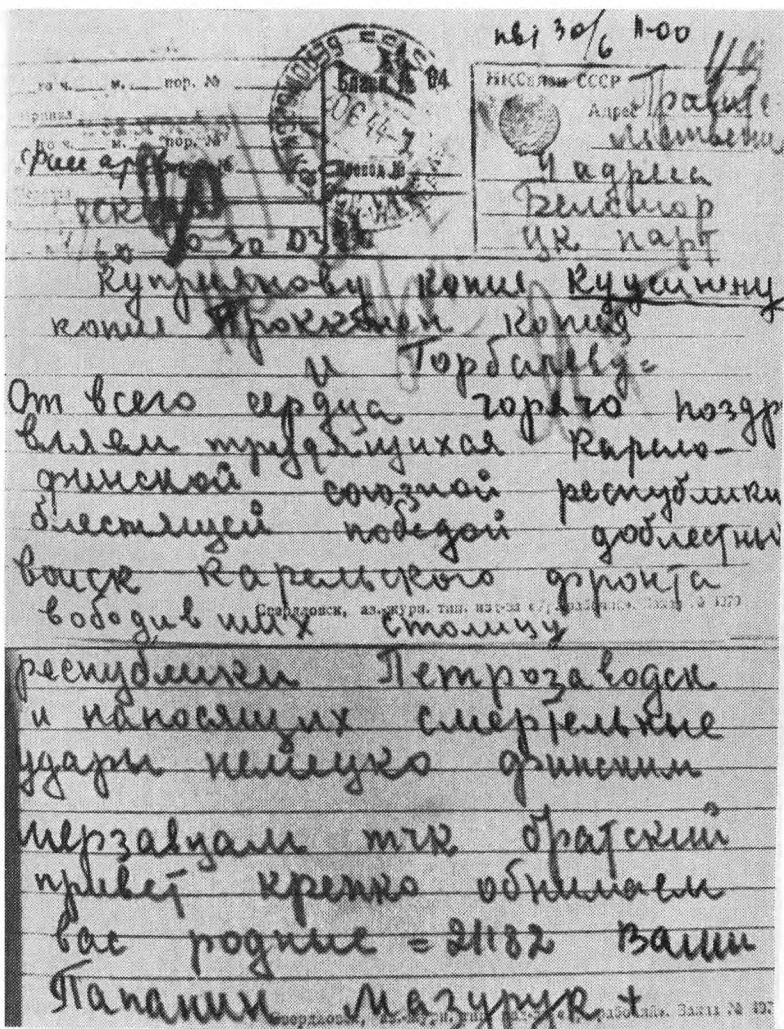 нв1 30/6 11-00
го ч. м. пор. №
Бланк № 04
НКСвязи СССР
го ч. м. пор. №
Адрес Правит
Провод №
4 адреса
Беломор
цк парт
Куприянову копие Куусинену
копие Проккбнен копия
и Горбачеву =
От всего сердца горячо поздр
вляем трудящихся Карело-
финской союзной республики
блестящей победой доблестны
войск Карельского фронта
вободивших столицу
республики Петрозаводск
и наносящих смертельные
удары немецко финским
мерзавцам тчк братский
привет крепко обнимаем
вас родные = 21182 Ваши
Папанин Мазурук +